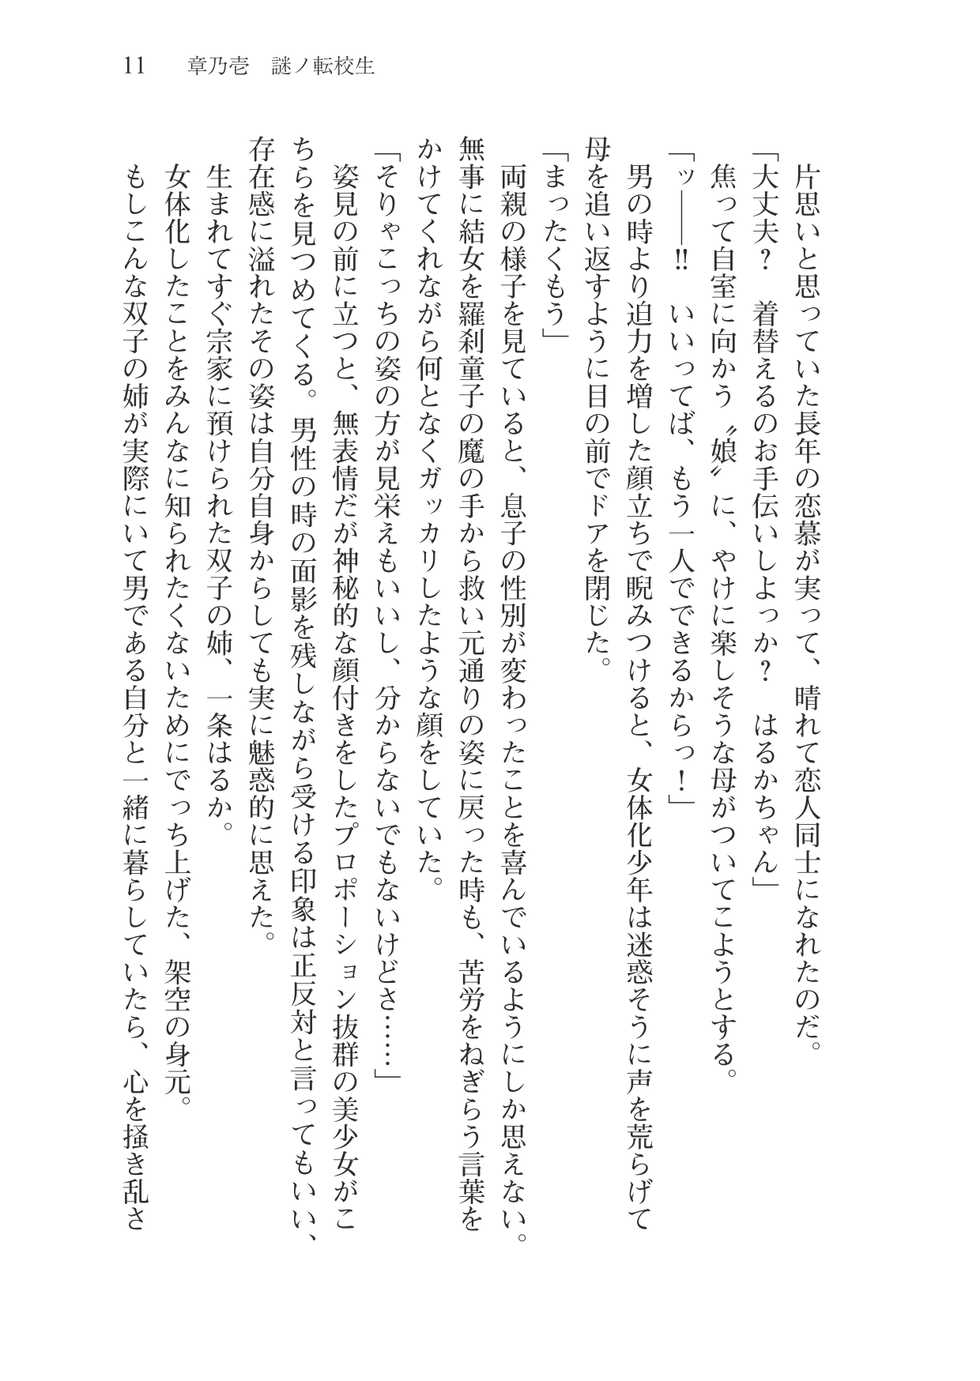 11　章乃壱　謎ノ転校生
片思いと思っていた長年の恋慕が実って、晴れて恋人同士になれたのだ。
「大丈夫？　着替えるのお手伝いしよっか？　はるかちゃん」
焦って自室に向かう〝娘〟に、やけに楽しそうな母がついてこようとする。
「ッ――!!　いいってば、もう一人でできるからっ！」
男の時より迫力を増した顔立ちで睨みつけると、女体化少年は迷惑そうに声を荒らげて
母を追い返すように目の前でドアを閉じた。
「まったくもう」
両親の様子を見ていると、息子の性別が変わったことを喜んでいるようにしか思えない。
無事に結女を羅刹童子の魔の手から救い元通りの姿に戻った時も、苦労をねぎらう言葉を
かけてくれながら何となくガッカリしたような顔をしていた。
「そりゃこっちの姿の方が見栄えもいいし、分からないでもないけどさ……」
姿見の前に立つと、無表情だが神秘的な顔付きをしたプロポーション抜群の美少女がこ
ちらを見つめてくる。男性の時の面影を残しながら受ける印象は正反対と言ってもいい、
存在感に溢れたその姿は自分自身からしても実に魅惑的に思えた。
生まれてすぐ宗家に預けられた双子の姉、一条はるか。
女体化したことをみんなに知られたくないためにでっち上げた、架空の身元。
もしこんな双子の姉が実際にいて男である自分と一緒に暮らしていたら、心を掻き乱さ